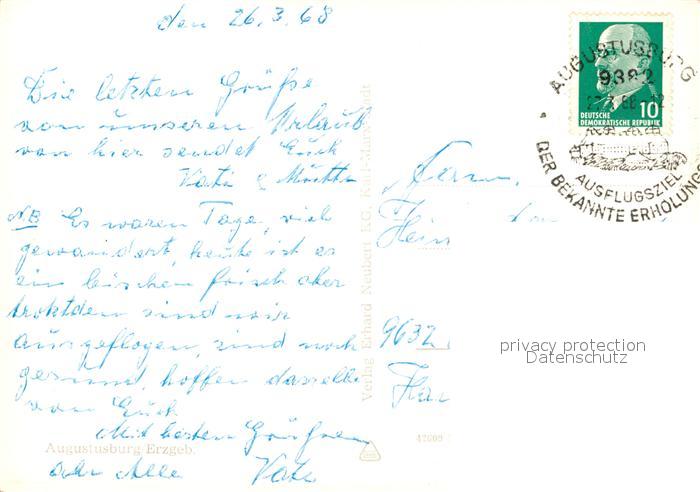 den 26.3.68
Die letzten Grüße
von unseren Urlaub
von hier sendet Euch
Vati & Mutti
NB Es waren Tage, viel
gewandert, heute ist es
ein bischen frisch aber
trotzden sind wir
ausgeflogen, sind noch
gesund, hoffen dasselbe
von Euch
Mit besten Grüßen
Augustusburg-Erzgeb.
Alle Vati
Verlag Erhard Neubert KG, Karl-Marx-Stadt
47609
AUGUSTUSBURG
9382
DEUTSCHE
DEMOKRATISCHE REPUBLIK
10
AUSFLUGSZIEL
DER BEKANNTE ERHOLUNGS
Fam.
Hein
9632
privacy protection
Datenschutz